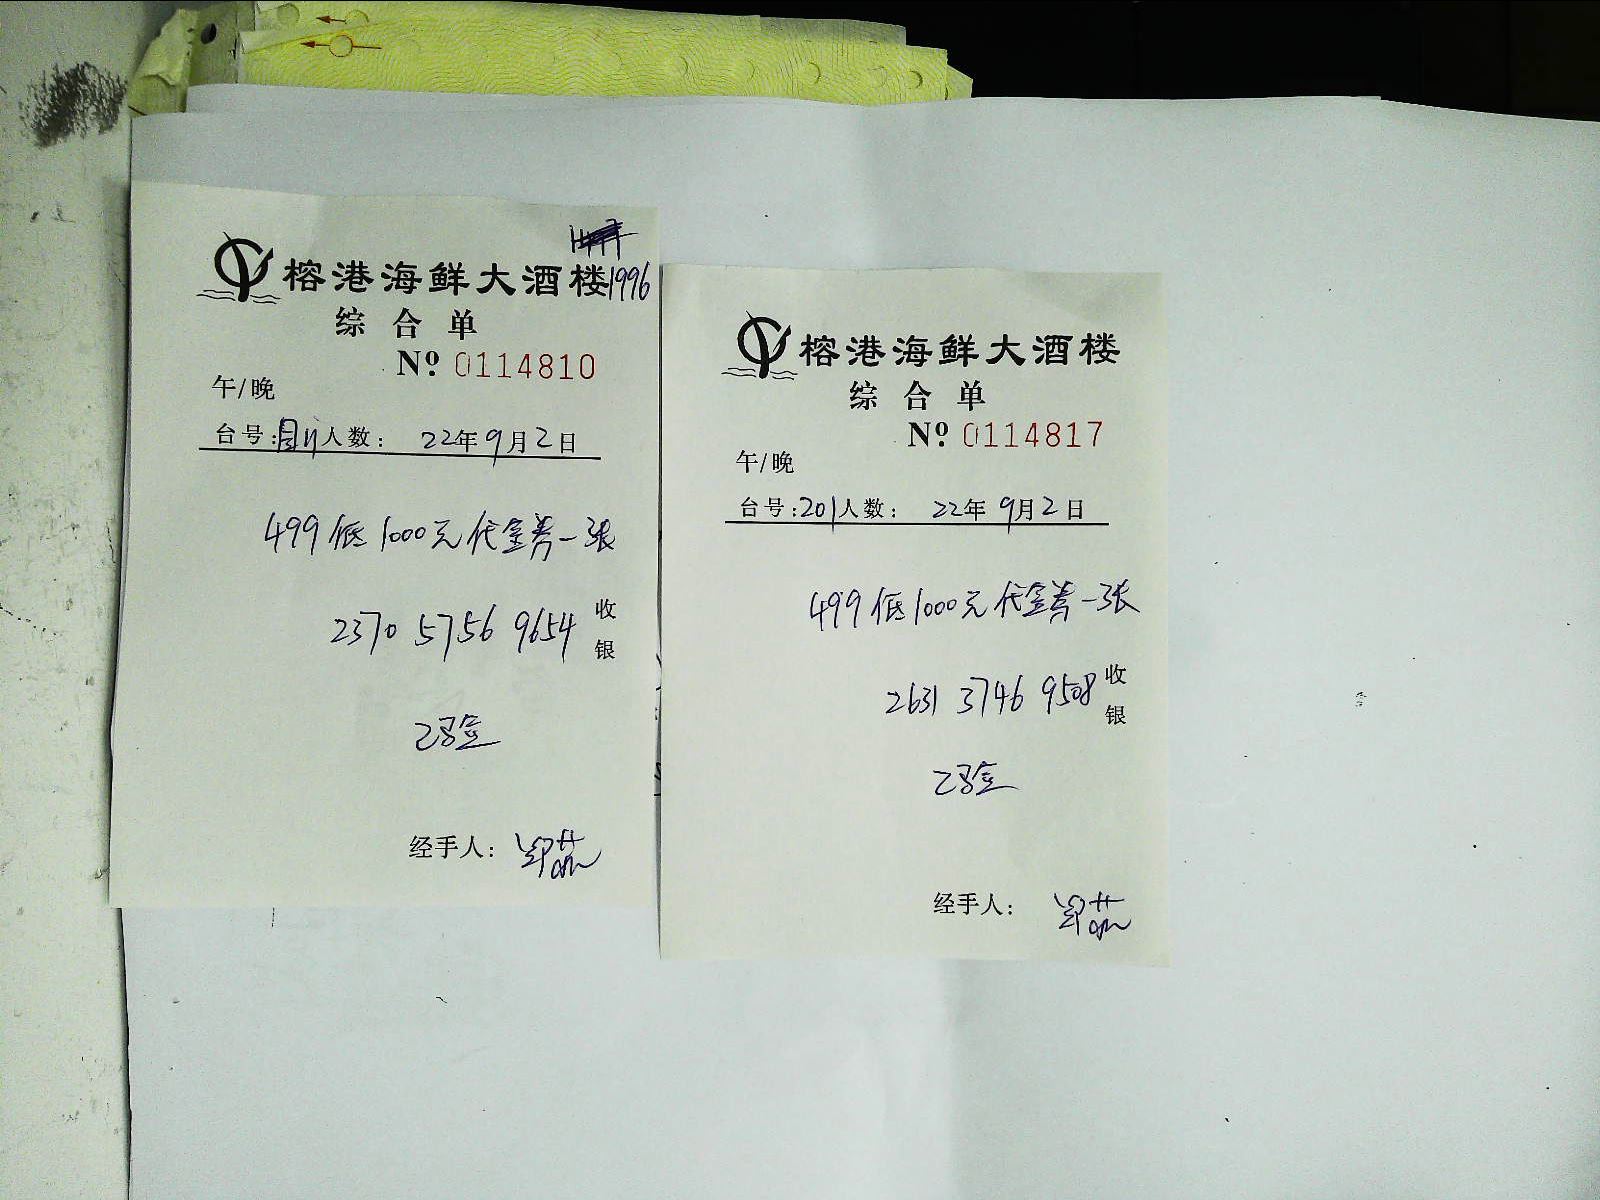 榕港海鲜大酒楼1996
综合单
Nº 0114810
午/晚
台号: 人数: 22年9月2日
499低1000元代金券一张
2370 5756 9654
收银
已验
经手人:
榕港海鲜大酒楼
综合单
Nº 0114817
午/晚
台号:201人数: 22年9月2日
499低1000元代金券一张
2631 3746 9508
收银
已验
经手人: